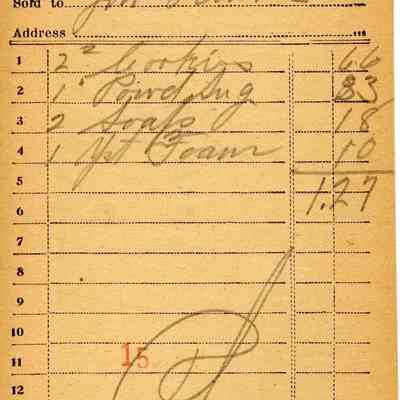 Sold to
Address
1 2 Cookies 66
2 1 Powd Sug 33
3 2 Soaps 18
4 1 Yst Foam 10
5
6 1.27
7
8
9
10
11 15
12